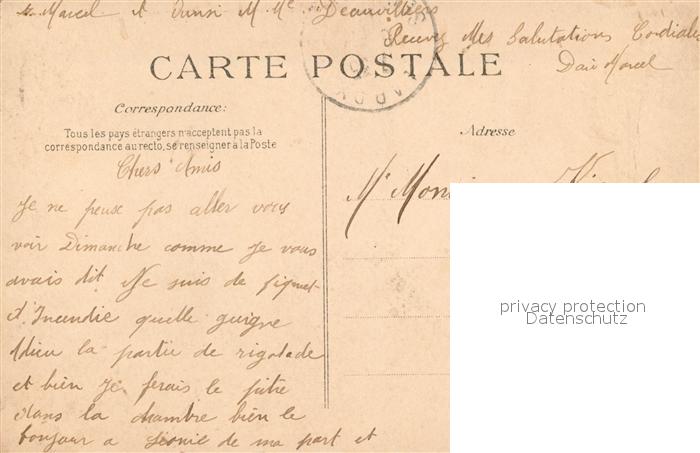 Marcel et ainsi M. Me Deauvilliers
Recevez Mes Salutations Cordiales
Marcel
CARTE POSTALE
Correspondance:
Tous les pays étrangers n'acceptent pas la
correspondance au recto, se renseigner à la Poste
Adresse
Chers Amis
Je ne peux pas aller vous
voir Dimanche comme je vous
avais dit Je suis de piquet
d'Incendie quelle guigne
Adieu la partie de rigolade
et bien je ferais le pitre
dans la chambre bien le
bonjour a Léonie de ma part et
Mr
privacy protection
Datenschutz